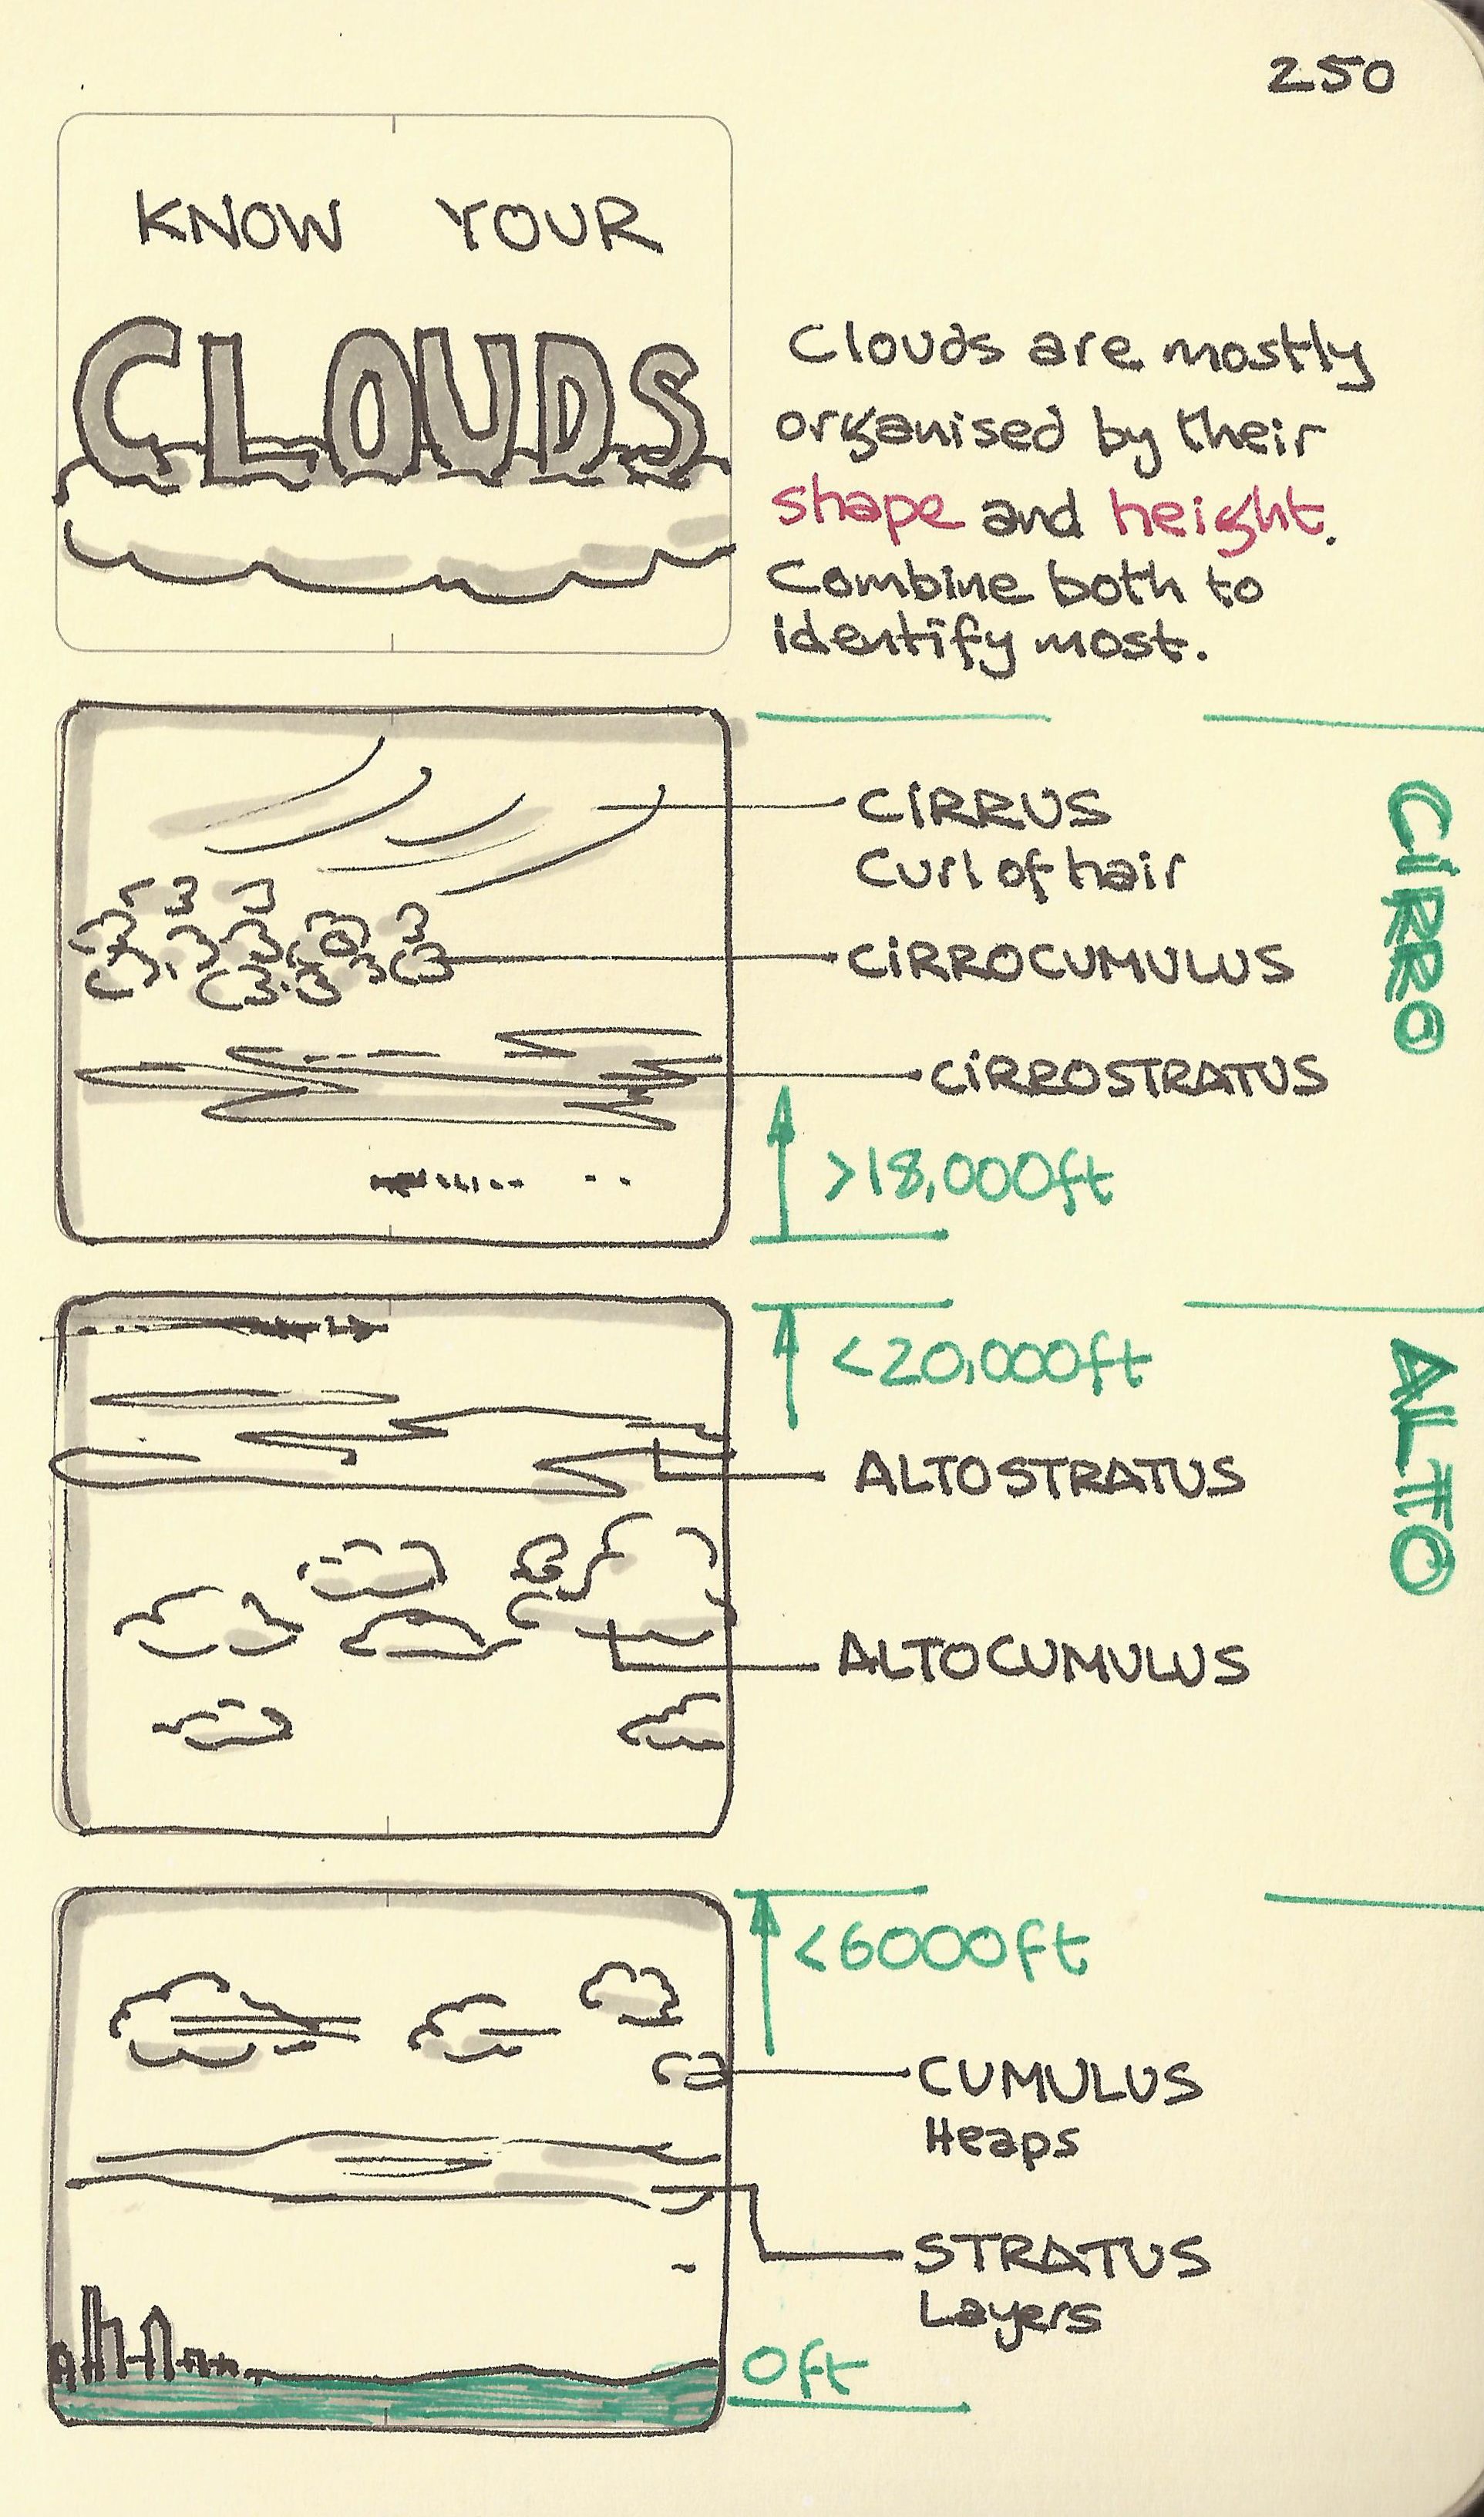 250
KNOW YOUR
CLOUDS
Clouds are mostly
organised by their
shape and height.
Combine both to
identify most.
CIRRUS
Curl of hair
CIRROCUMULUS
CIRROSTRATUS
>18,000ft
CIRRO
<20,000ft
ALTOSTRATUS
ALTOCUMULUS
ALTO
<6000ft
CUMULUS
Heaps
STRATUS
Layers
0ft